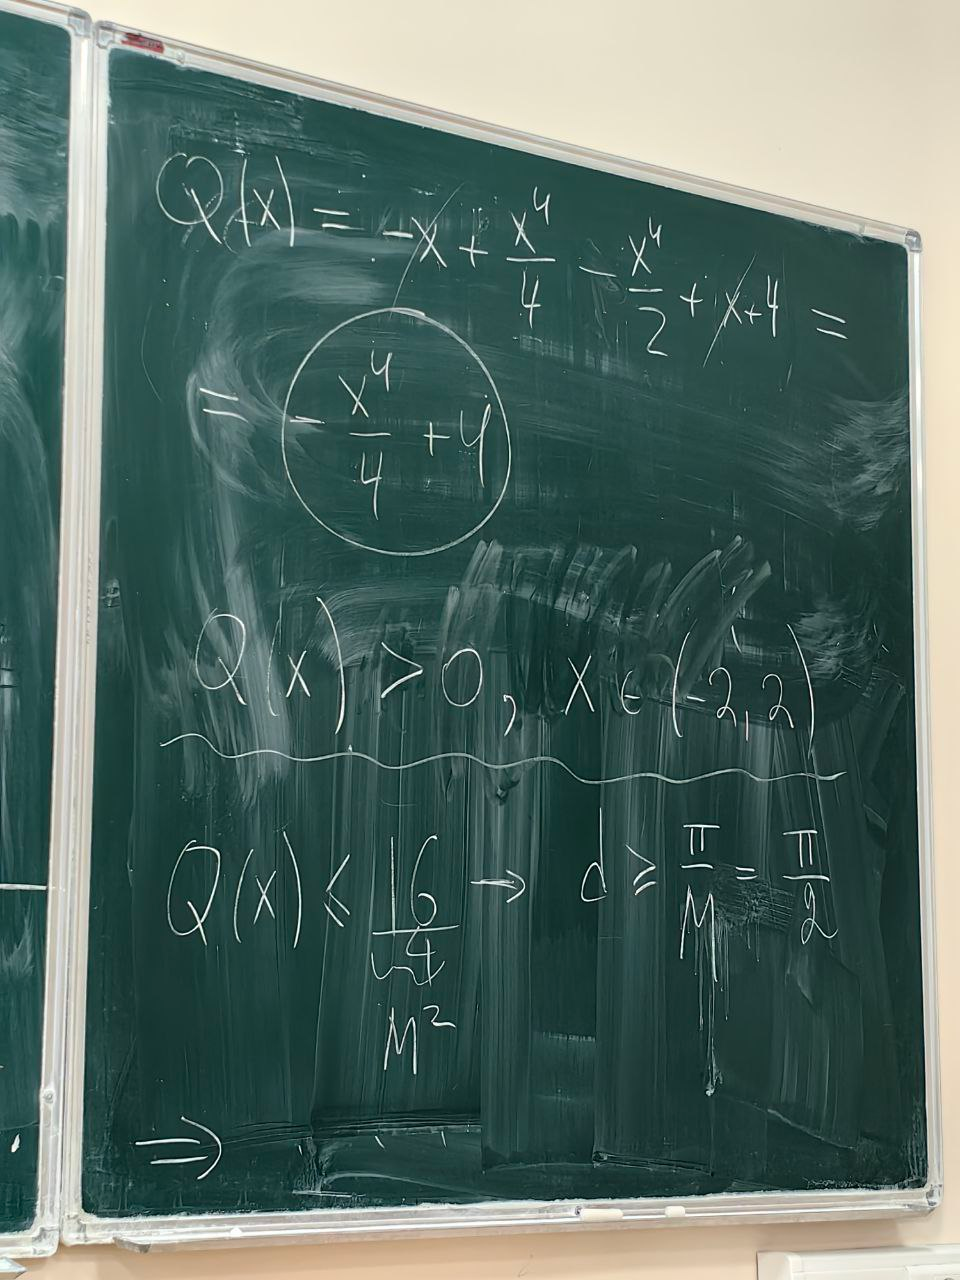 Q(x) = -x + x⁴/4 - x⁴/2 + x + 4 =
= -x⁴/4 + 4
Q(x) > 0, x ∈ (-2, 2)
Q(x) ≤ 16/4 → d ≥ π/M = π/2
M²
⇒